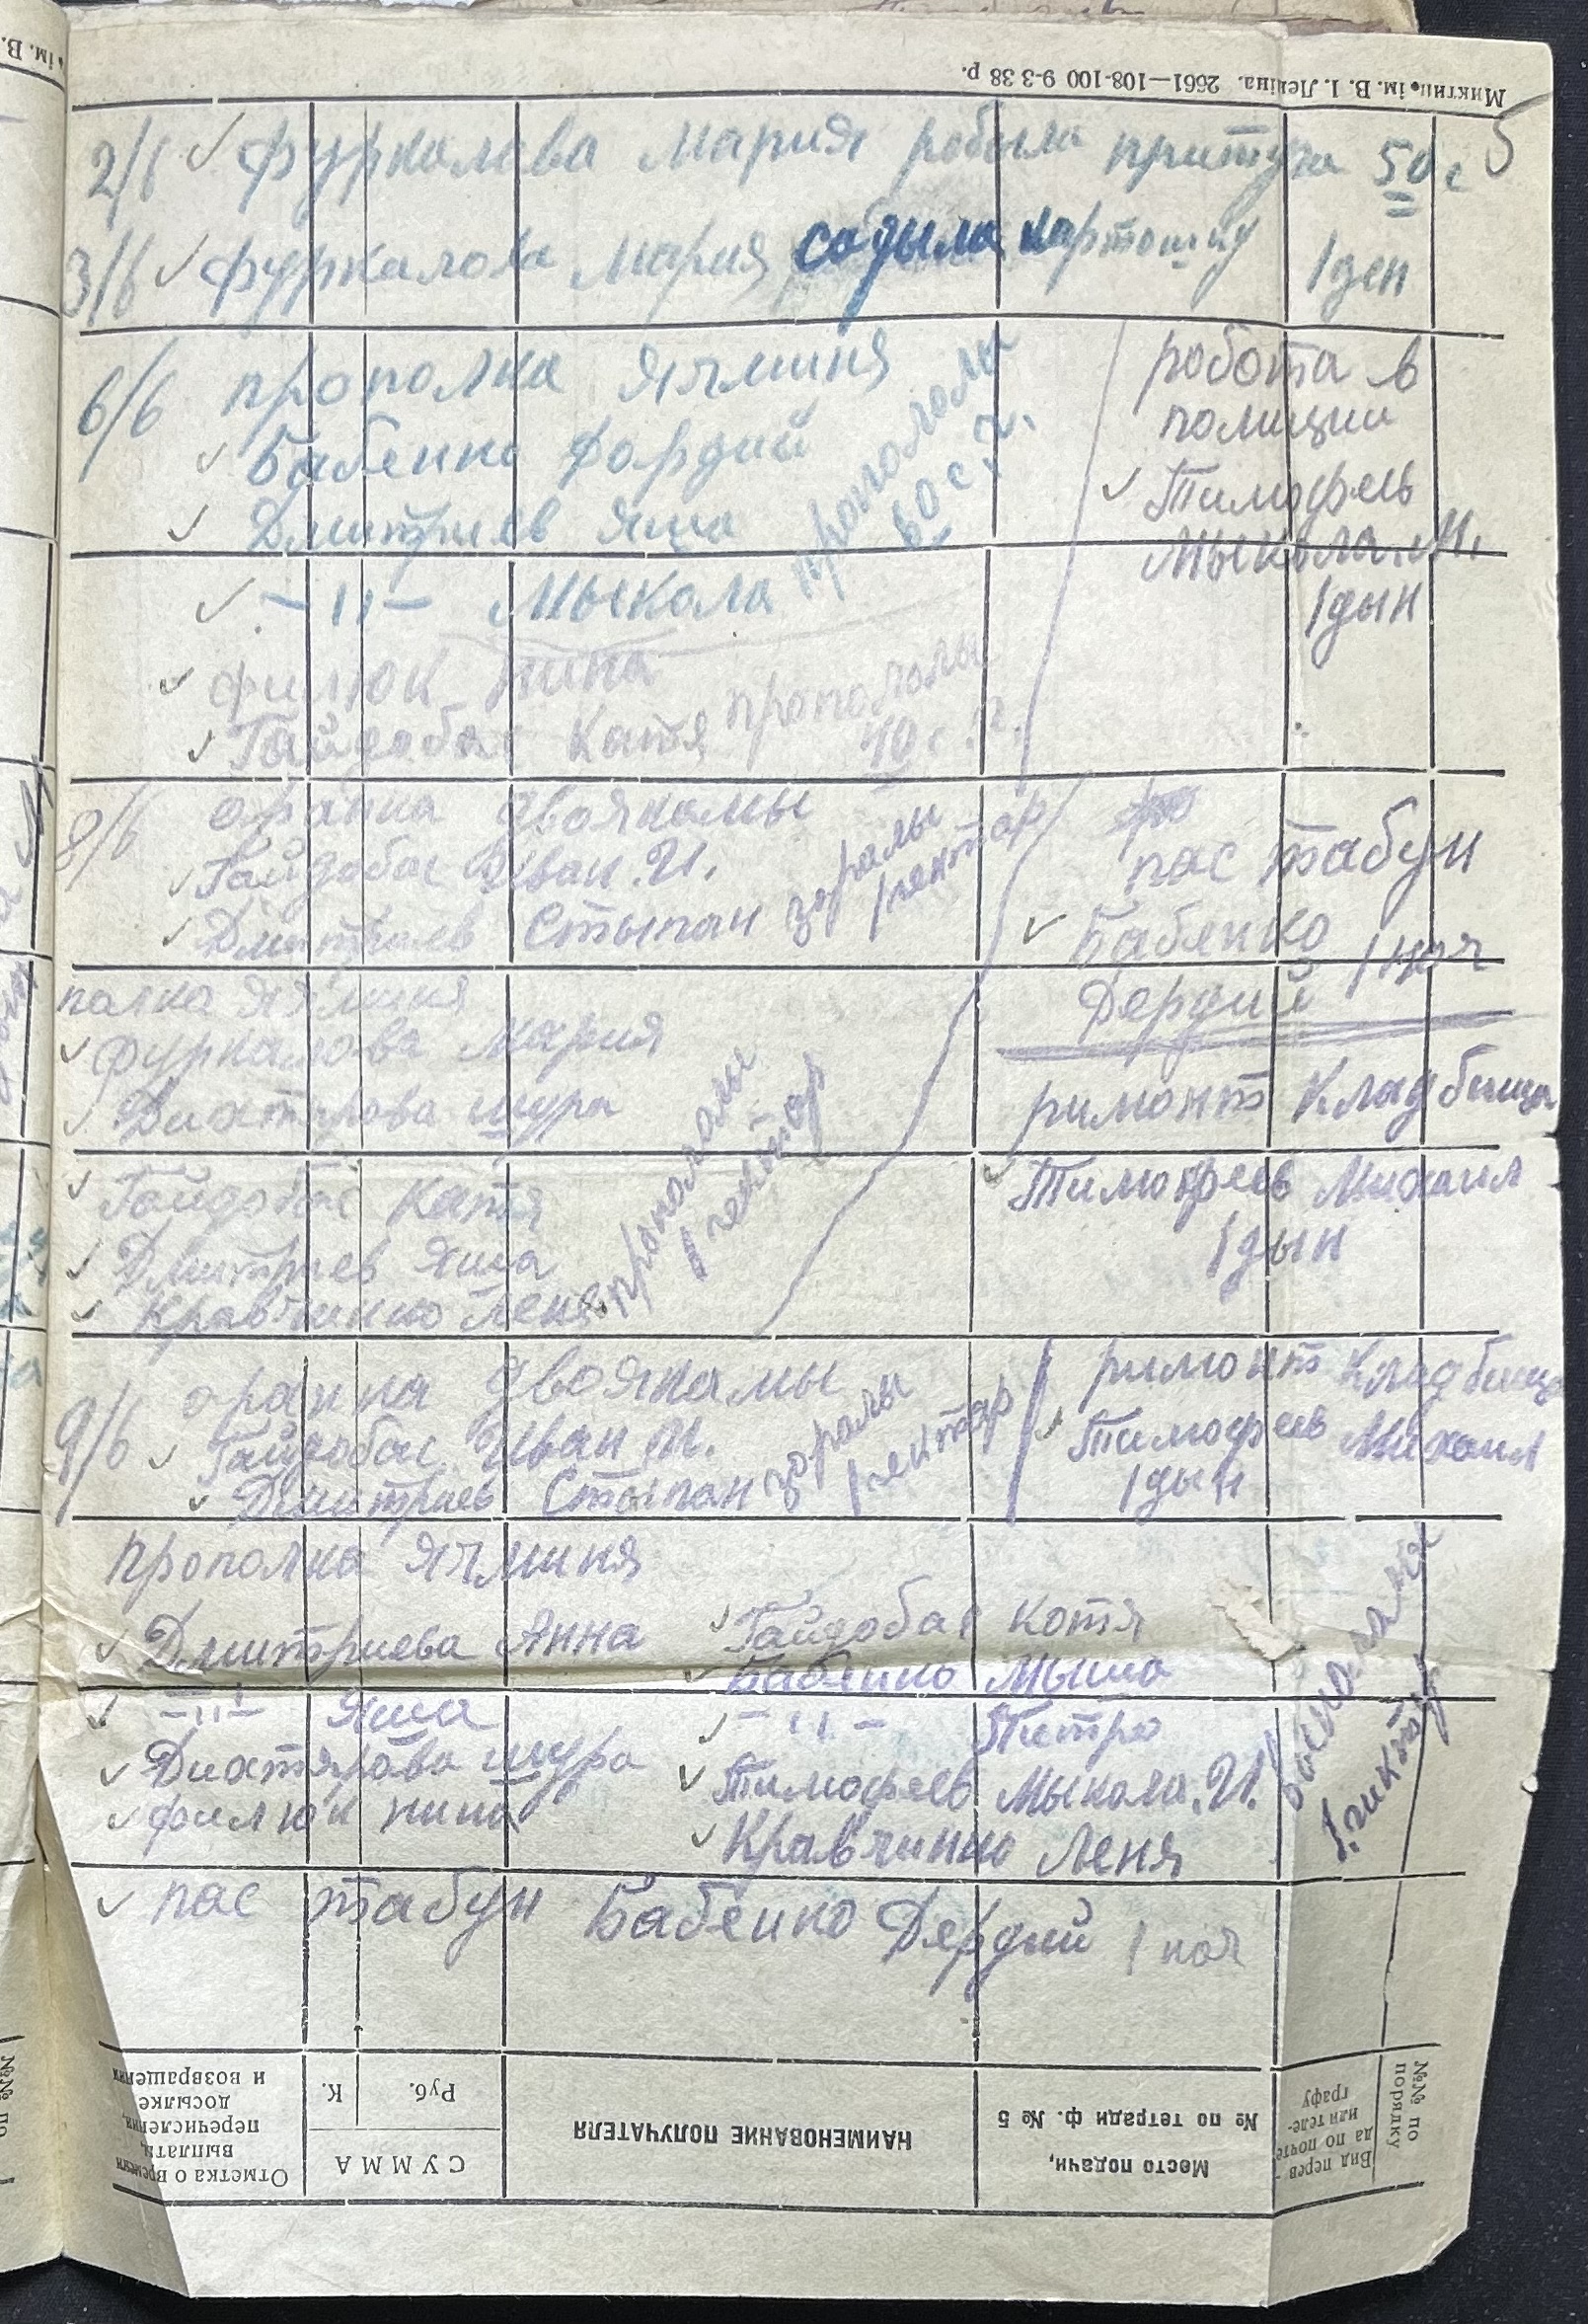 Миктип. ім. В. І. Леніна. 2661—108-100 9-3-38 р.
5
2/6 ✓ Фуркалова Мария робыла притуга 50 с
3/6 ✓ Фуркалова Мария садыла картошку 1 ден
6/6 прополка ячминя
✓ Бабенко Фордий
✓ Дмитриев Яша
✓ –"– Мыкола
пропололи
60 с. г.
✓ Филюк нина
✓ Гайдобас Катя
прополы
40 с. г.
робота в
полиции
✓ Тимофеев
Мыкола. М.
1 дын
8/6 оранка двояками
✓ Гайдобас Иван. И.
✓ Дмитриев Стыпан
зоралы
1 гектар
пас табун
✓ Бабенко
Дердий 1 ноч
полка ячминя
✓ Фуркалова Мария
✓ Дихтярова шура
✓ Гайдобас Катя
✓ Дмитриев Яша
✓ Кравчинко Леня
пропололи
1 гектар
римонт Кладбища
✓ Тимофеев Михаил
1 дын
9/6 оранка двоякамы
✓ Гайдобас Иван И.
✓ Дмитриев Стыпан
зоралы
1 гектар
римонт Кладбища
✓ Тимофеев Михаил
1 дын
прополка ячминя
✓ Дмитриева Анна
✓ –"– Яша
✓ Дихтярова шура
✓ Филюк нина
✓ Гайдобас Котя
✓ Бабенко Мыша
✓ –"– Питро
✓ Тимофеев Мыкола. И.
✓ Кравчинко Леня
1. гиктар
✓ пас табун Бабенко Дердий 1 ноч
№№ по порядку
Вид перев-
да по почте
или теле-
графу
Место подачи,
№ по тетради ф. № 5
НАИМЕНОВАНИЕ ПОЛУЧАТЕЛЯ
СУММА
Руб.
К.
Отметка о времени
выплаты,
перечисления,
досылке
и возвращения